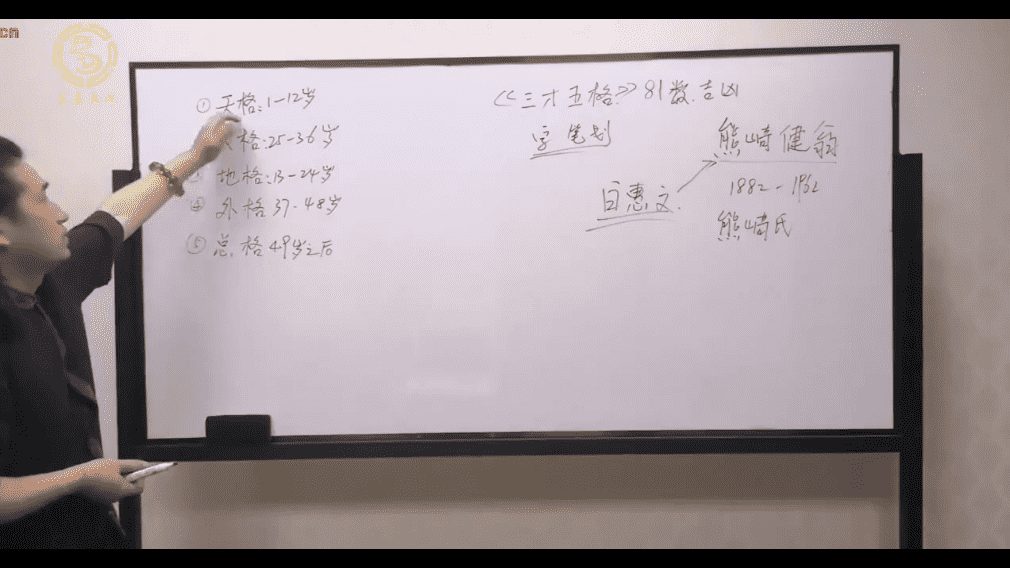 cn
① 天格:1-12岁
格:25-36岁
地格:13-24岁
④ 外格 37-48岁
⑤ 总格 49岁之后
《三才五格》81数.吉凶
字笔划
熊崎健翁
白惠文.
1882-1962
熊崎氏